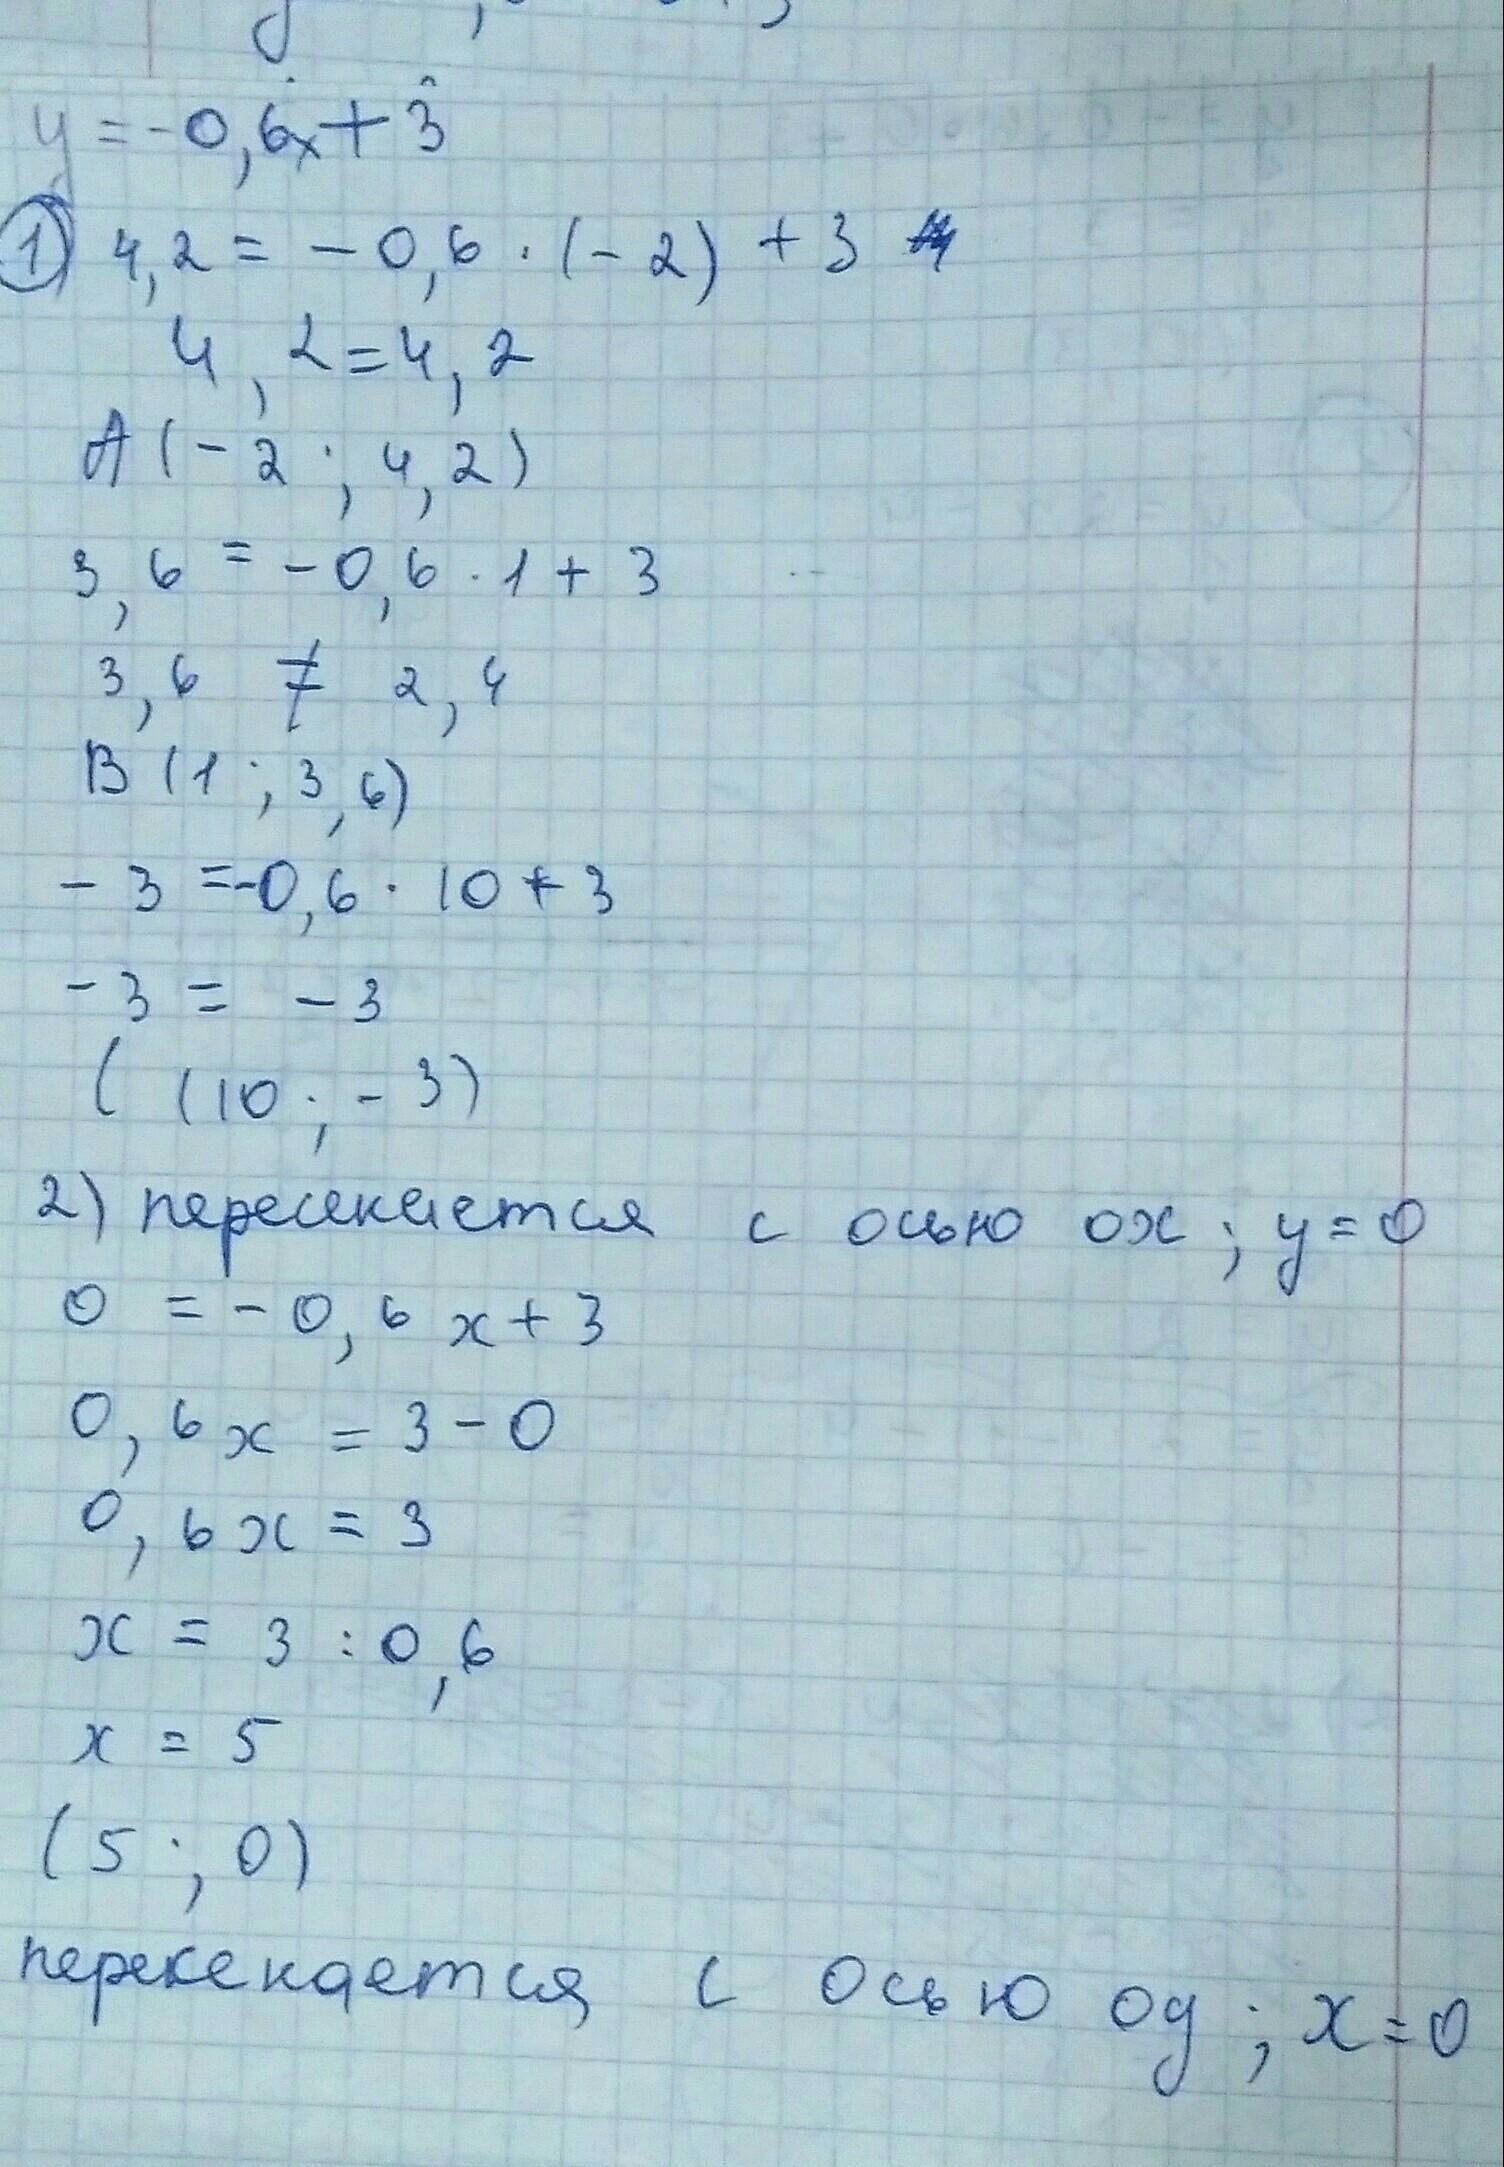 y = -0,6x + 3
1) 4,2 = -0,6 · (-2) + 3
4,2 = 4,2
A (-2 ; 4,2)
3,6 = -0,6 · 1 + 3
3,6 ≠ 2,4
B (1 ; 3,6)
-3 = -0,6 · 10 + 3
-3 = -3
( (10 ; -3)
2) пересекается с осью ох ; y = 0
0 = -0,6 x + 3
0,6x = 3 - 0
0,6x = 3
x = 3 : 0,6
x = 5
(5 ; 0)
перекекается с осью оу ; x = 0